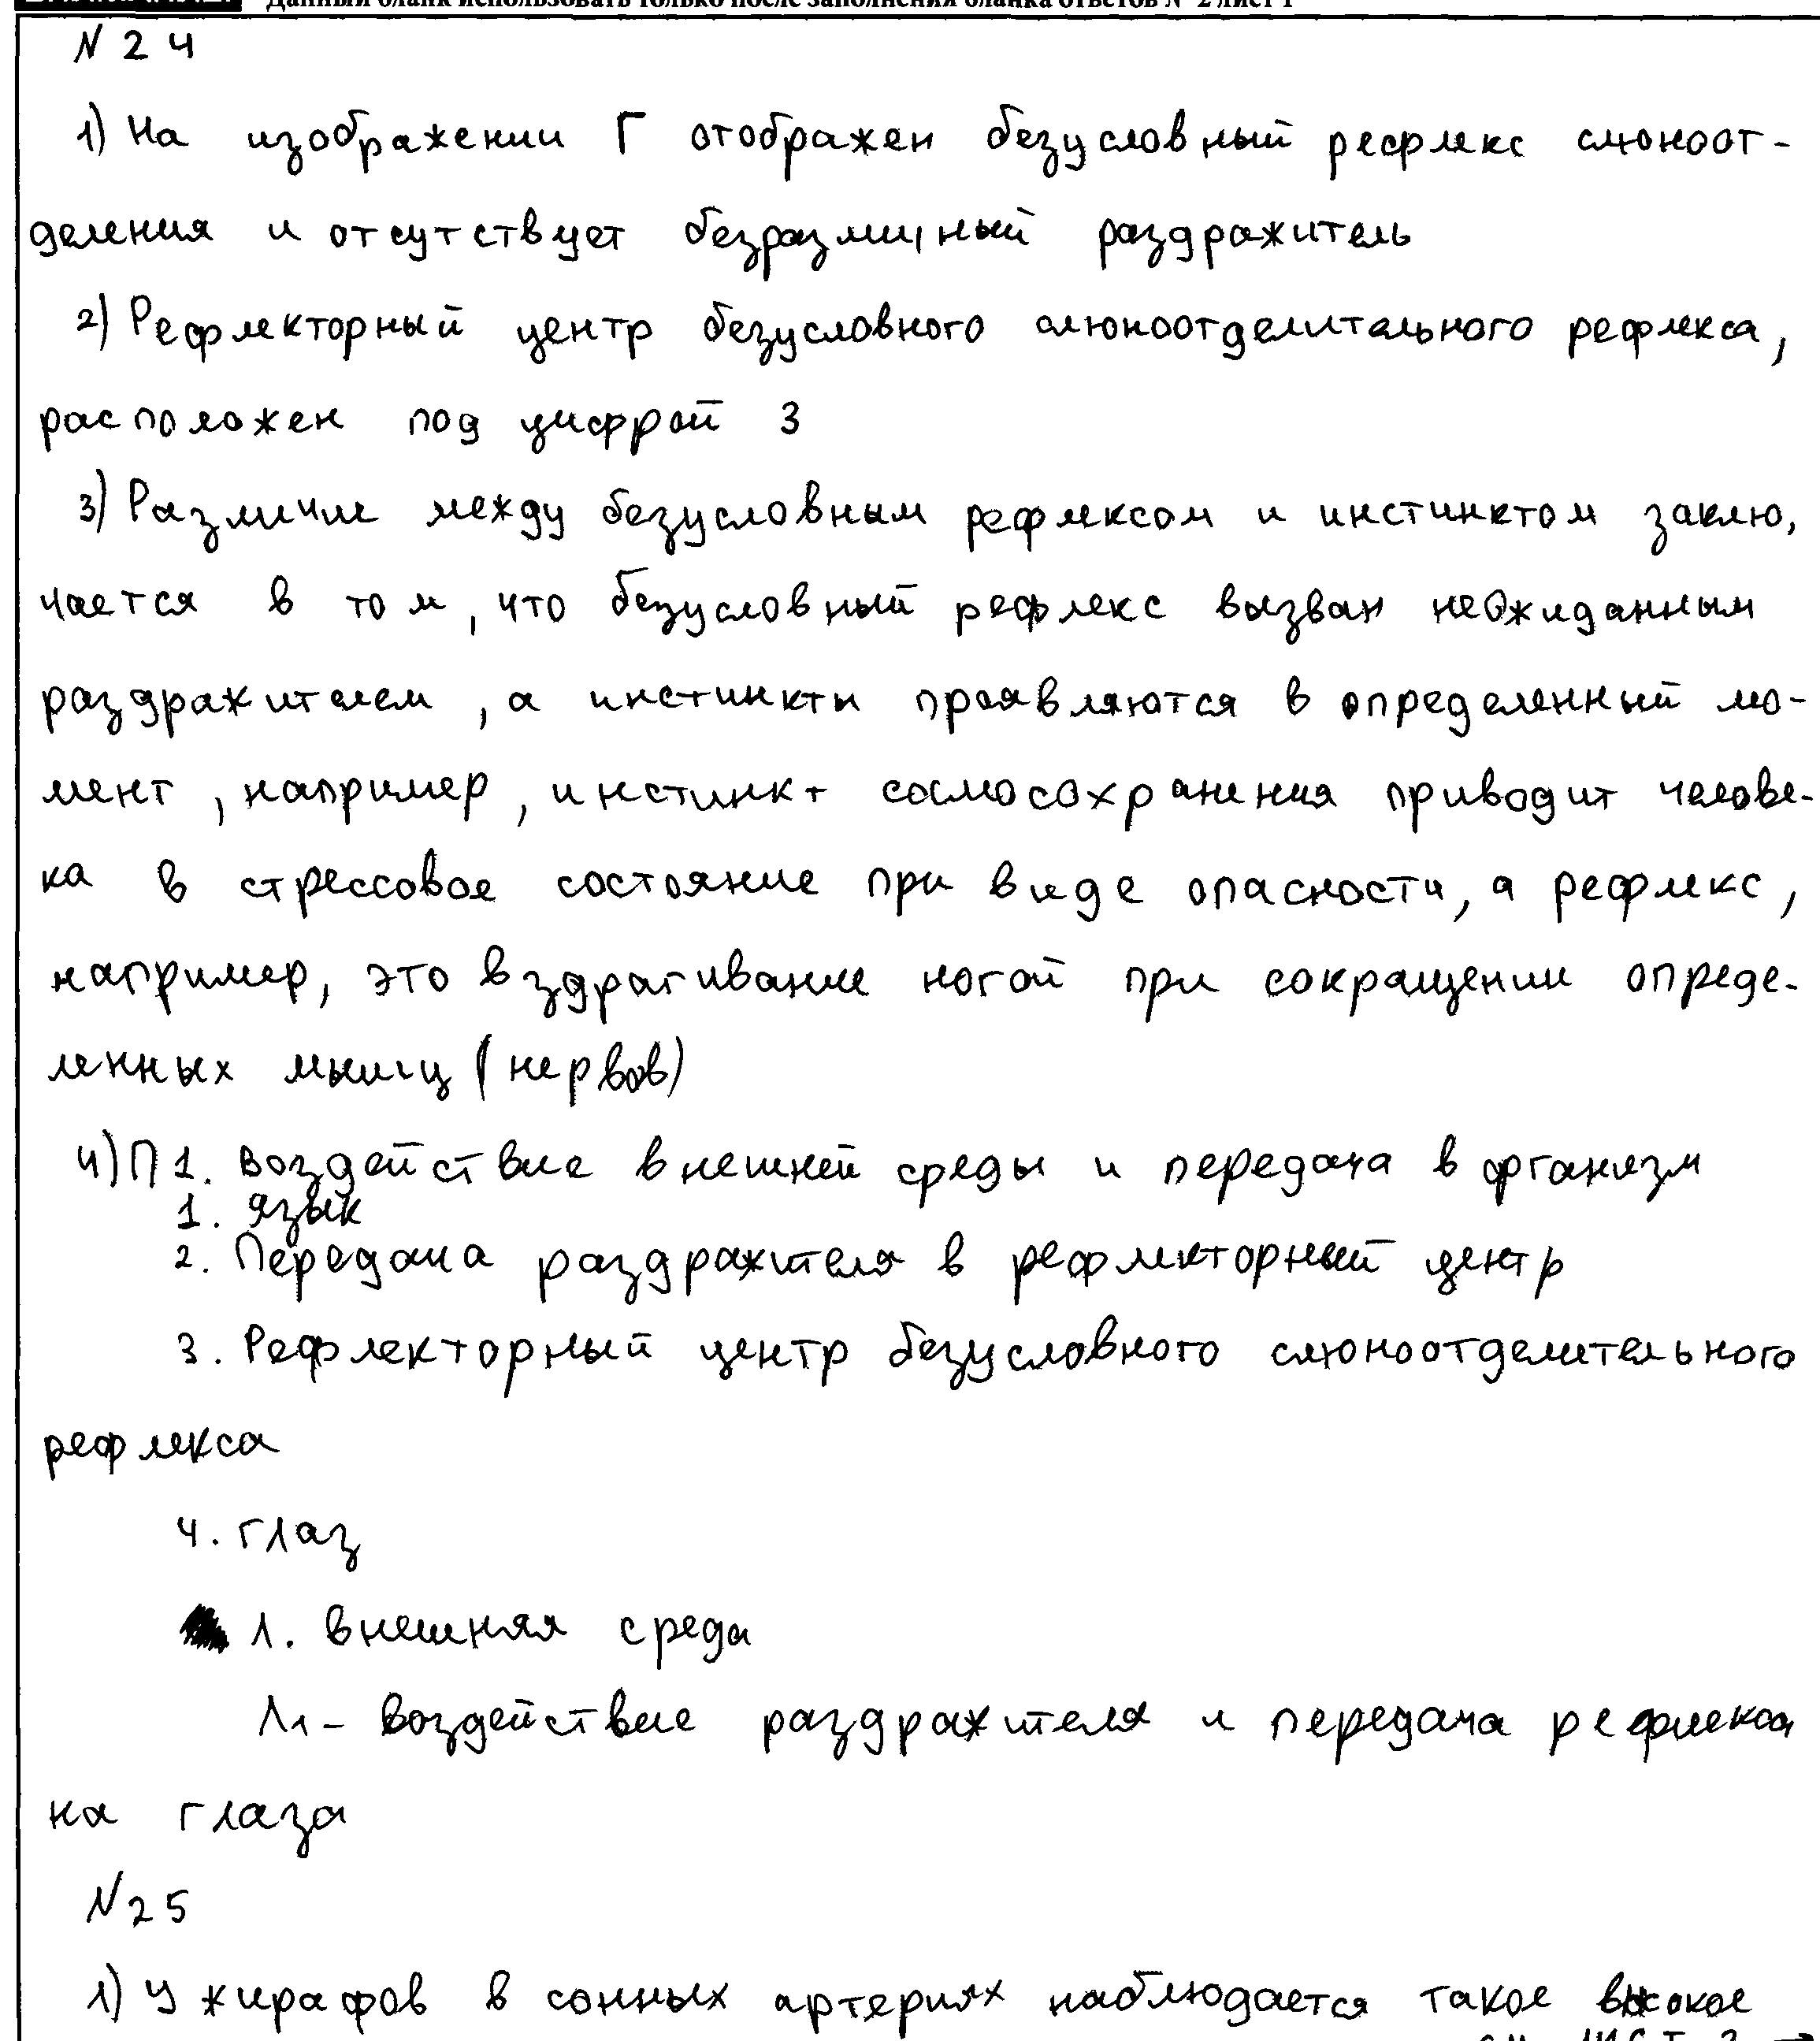 Данный бланк использовать только после заполнения бланка ответов № 2 лист 1
N 24
1) На изображении Г отображен безусловный рефлекс слюноот-
деления и отсутствует безразличный раздражитель
2) Рефлекторный центр безусловного слюноотделительного рефлекса,
расположен под цифрой 3
3) Различие между безусловным рефлексом и инстинктом заклю,
чается в том, что безусловный рефлекс вызван неожиданным
раздражителем, а инстинкты проявляются в определенный мо-
мент, например, инстинкт самосохранения приводит челове-
ка в стрессовое состояние при виде опасности, а рефлекс,
например, это вздрагивание ногой при сокращении опреде-
ленных мышц (нервов)
4) П 1. Воздействие внешней среды и передача в организм
1. язык
2. Передача раздражителя в рефлекторный центр
3. Рефлекторный центр безусловного слюноотделительного
рефлекса
4. глаз
1. внешняя среда
11 - воздействие раздражителя и передача рефлекса
на глаза
N 25
1) У жирафов в сонных артериях наблюдается такое высокое
см. лист 3